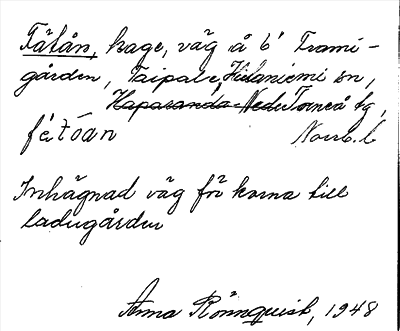 Fätån, hage, väg å 6' Frami-
gården, Taipale, Hietaniemi sn,
Haparanda Neder Torneå tg,
fé̀tóan Norrb. l.
Inhägnad väg för korna till
ladugården
Anna Rönnquist, 1948